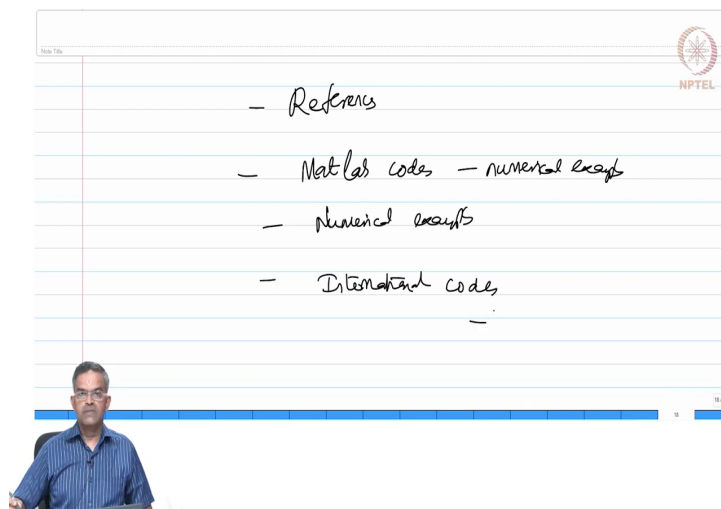 Note Title
NPTEL
- References
- Matlab codes - numerical examples
- Numerical examples
- International codes
-
18
18